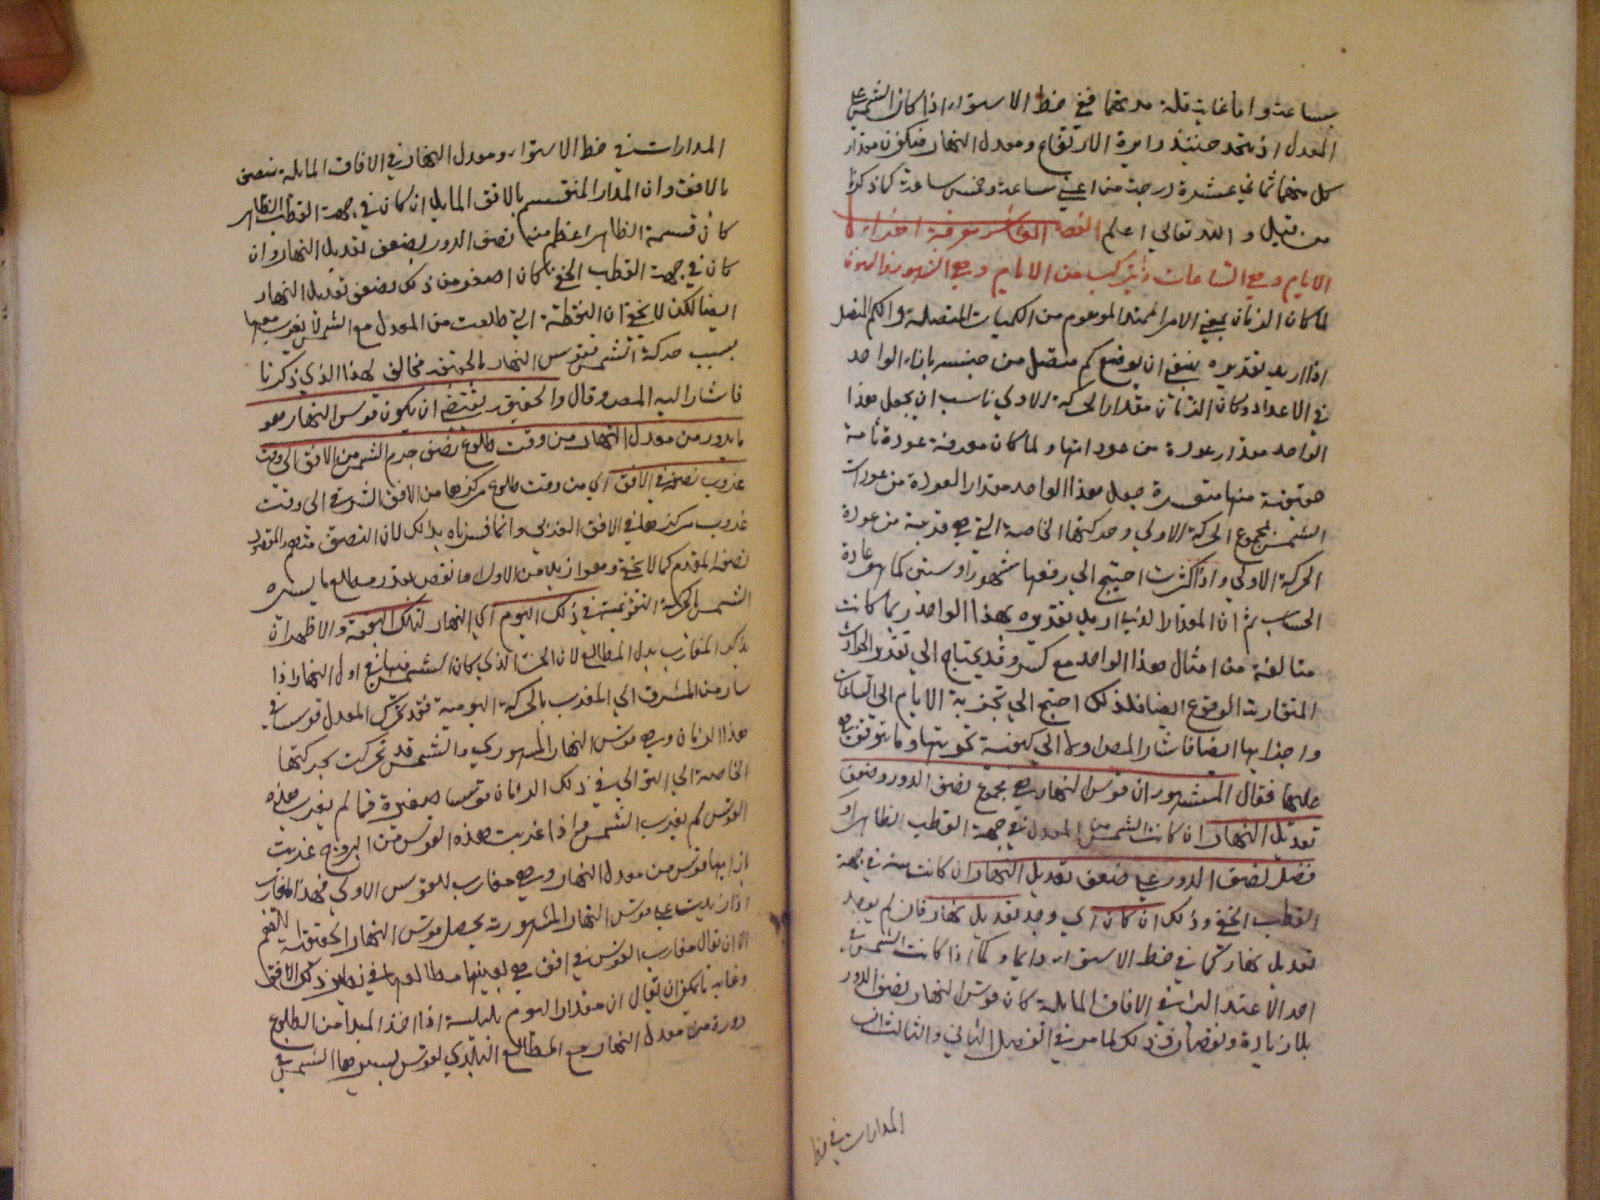 ساعة واما غاية قلة مدتهما ففي خط الاستواء اذا كان الشمس على
المعدل اذ يتحد حينئذ دايرة الارتفاع ومعدل النهار فيكون مقدار
كل منهما ثماني عشرة درجة من اعني ساعة وخمس ساعة كما ذكرنا
من قبل والله تعالى اعلم الفصل العاشر في معرفة اجزاء
الايام وهي الساعات وما يتركب من الايام وهي الشهور والسنون
لما كان الزمان يعني الامر الممتد الموهوم من الكميات المتصلة والكم المتصل
اذا اريد تقديره ينبغي ان يوضع كم متصل من جنسه بازاء الواحد
في الاعداد وكان الزمان مقدار الحركة الاولى ناسب ان يجعل هذا
الواحد مقدار عودة من عوداتها ولما كان معرفة عودة تامة
حقيقية منها متعسرة جعل هذا الواحد مقدار العودة من عودات
الشمس بمجموع الحركة الاولى وحركتها الخاصة التي هي قريبة من عودة
الحركة الاولى واذا كثرت احتيج الى رفعها شهورا وسنين كما هو عادة
الحساب ثم ان المقدار الذي اريد تقديره بهذا الواحد ربما كانت
متالفة من امثال هذا الواحد مع كسر وقد يحتاج الى تقدير الحوادث
المتقاربة الوقوع ايضا فلذلك احتيج الى تجزية الايام الى الساعات
واجزايها ايضا فاشار المص اولا الى كيفية تجزيتها وما يتوقف هي
عليها فقال المشهور ان قوس النهار هي مجموع نصف الدور وضعف
تعديل النهار ان كانت الشمس من المعدل في جهة القطب الظاهر او
فضل نصف الدور على ضعف تعديل النهار ان كانت منه في جهة
القطب الخفي وذلك ان كان اي وجد تعديل نهار فان لم يوجد
تعديل نهار كما في خط الاستواء دايما وكما اذا كانت الشمس في
احد الاعتدالين في الافاق المايلة كان قوس النهار نصف الدور
بلا زيادة ونقصان وذلك لما مر في الفصل الثاني والثالث ان
المدارات في خط
المدارات في خط الاستواء ومعدل النهار في الافاق المايلة ينصف
بالافق وان المدار المنقسم بالافق المايل ان كان في جهة القطب الظاهر
كان قسمه الظاهر اعظم من نصف الدور بضعف تعديل النهار وان
كان في جهة القطب الخفي كان اصغر من ذلك بضعف تعديل النهار
ايضا لكن لا يخفى ان النقطة التي طلعت من المعدل مع الشمس لا يغرب معها
بسبب حركة الشمس فقوس النهار بالحقيقة مخالف لهذا الذي ذكرنا
فاشار اليه المص وقال والتحقيق يقتضي ان يكون قوس النهار هو
ما يدور من معدل النهار من وقت طلوع نصف جرم الشمس من الافق الى وقت
غروب نصفه في الافق اي من وقت طلوع مركزها من الافق الشرقي الى وقت
غروب مركزها في الافق الغربي وانما فسرناه بذلك لان
نصف المقدم كما لا يخفى وهو ازيد من الاول بقدر مطالع ما يسيره
الشمس بالحركة التقويمية في ذلك اليوم اي النهار لتلك البقعة والاظهر ان
يذكر المغارب بدل المطالع لان الجزء الذي كان الشمس فيها في اول النهار اذا
سار من المشرق الى المغرب بالحركة اليومية فقد تحرك المعدل قوسا في
هذا الزمان وهي قوس النهار المشهوري والشمس قد تحركت بحركتها
الخاصة الى التوالي في ذلك الزمان قوسا صغيرة فما لم يغرب هذه
القوس لم يغرب الشمس فاذا غربت هذه القوس من البروج غربت
بازايها قوس من معدل النهار وهي مغارب للقوس الاولى فهذه المغارب
اذا زيدت على قوس النهار المشهورة يحصل قوس النهار الحقيقية اللهم
الا ان يقال مغارب القوس في افق هي بعينها مطالعها في نظير ذلك الافق
وغاية ما يمكن ان يقال ان مقدار اليوم بليلته اذا اخذ المبدأ من الطلوع
دورة من معدل النهار مع المطالع البلدي لقوس يسيرها الشمس في